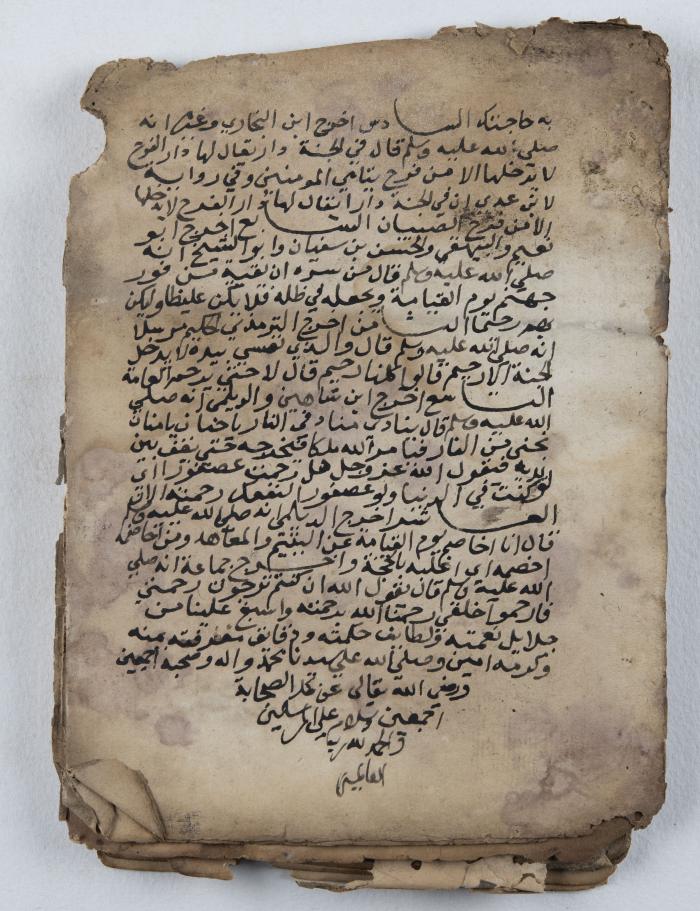 به حاجتك السادس اخرج ابن البخاري وغيره انه
صلي الله عليه وسلم قال في الجنة دار يقال لها دار الفرح
لا يدخلها الا من فرح يتامي المومنين وفي رواية
لابن عدي ان في الجنة دارا يقال لها دار الفرح لا يدخلها
الا من فرح الصبيان السابع اخرج ابو
نعيم والبيهقي والحسن بن سفيان وابو الشيخ انه
صلي الله عليه وسلم قال من سره ان يقيه من فور
جهنم يوم القيامة ويجعله في ظله فلا يكن عليظا وليكن
بهم رحيما الثامن اخرج الترمذي الحكيم مرسلا
انه صلي الله عليه وسلم قال والذي نفسي بيده لا يدخل
الجنة الا رحيم قالوا كلنا رحيم قال لا حتي يرحم العامة
التاسع اخرج ابن شاهين والديلمي انه صلي
الله عليه وسلم قال ينادي مناد في النار يا حنان يا منان
نجني من النار فيامر الله ملكا فيخرجه حتي يقف بين
يديه فيقول الله عز وجل هل رحمت عصفورا اي
لو كنت في الدنيا ولو عصفورا لنفعك رحمته الان
العاشر اخرج الديلمي انه صلي الله عليه وسلم
قال انا اخاصم يوم القيامة عن اليتيم والمعاهد ومن اخاصمه
اخصمه اي اغلبه بالحجة واخرج جماعة انه صلي
الله عليه وسلم قال يقول الله ان كنتم ترجون رحمتي
فارحموا خلقي رحمنا الله برحمته واسبغ علينا من
جلايل نعمته ولطايف حكمته ودقايق معرفته بمنه
وكرمه امين وصلي الله علي سيدنا محمد واله وصحبه اجمعين
ورضي الله تعالي عن الصحابة
اجمعين وسلام علي المرسلين
والحمد لله رب
العالمين